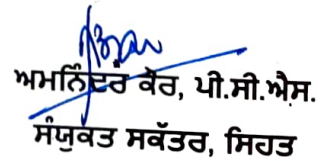 ਅਮਨਿੰਦਰ ਕੌਰ, ਪੀ.ਸੀ.ਐਸ.
ਸੰਯੁਕਤ ਸਕੱਤਰ, ਸਿਹਤ